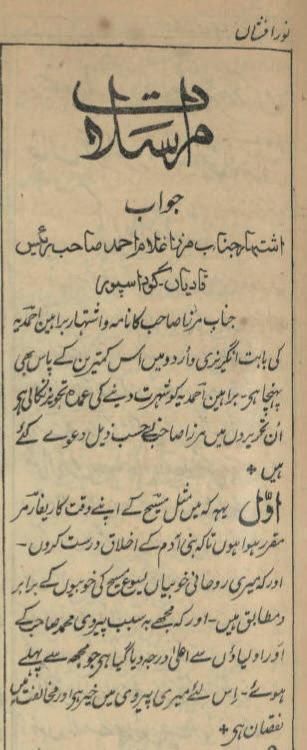 نور افشاں
مراسلات
جواب
اشتہار جناب مرزا غلام احمد صاحب رئیس
قادیاں۔ گورداسپور
جناب مرزا صاحب کا نامہ و اشتہار براہین احمدیہ
کی بابت انگریزی و اُردو میں اس کمترین کے پاس بھی
پہنچا ہی۔ براہین احمدیہ کو شہرت دینے کی عمدہ تجویز نکالی ہی
اُن تحریروں میں مرزا صاحب نے حسب ذیل دعوے کئے
ہیں +
اوّل یہہ کہ میں مثل مسیح کے اپنے وقت کا ریفارمر
مقرر ہوا ہوں تا کہ بنی آدم کے اخلاق درست کروں۔
اور کہ میری روحانی خوبیاں یسوع مسیح کی خوبیوں کے برابر
و مطابق ہیں۔ اور کہ مجھے بہ سبب پیروی محمد صاحب کے
اَور اولیاؤں سے اعلیٰ درجہ دیا گیا ہی جو مجھ سے پہلے
ہوئے۔ اِس لئے میری پیروی میں خیر ہی اور مخالفت میں
نقصان ہی +